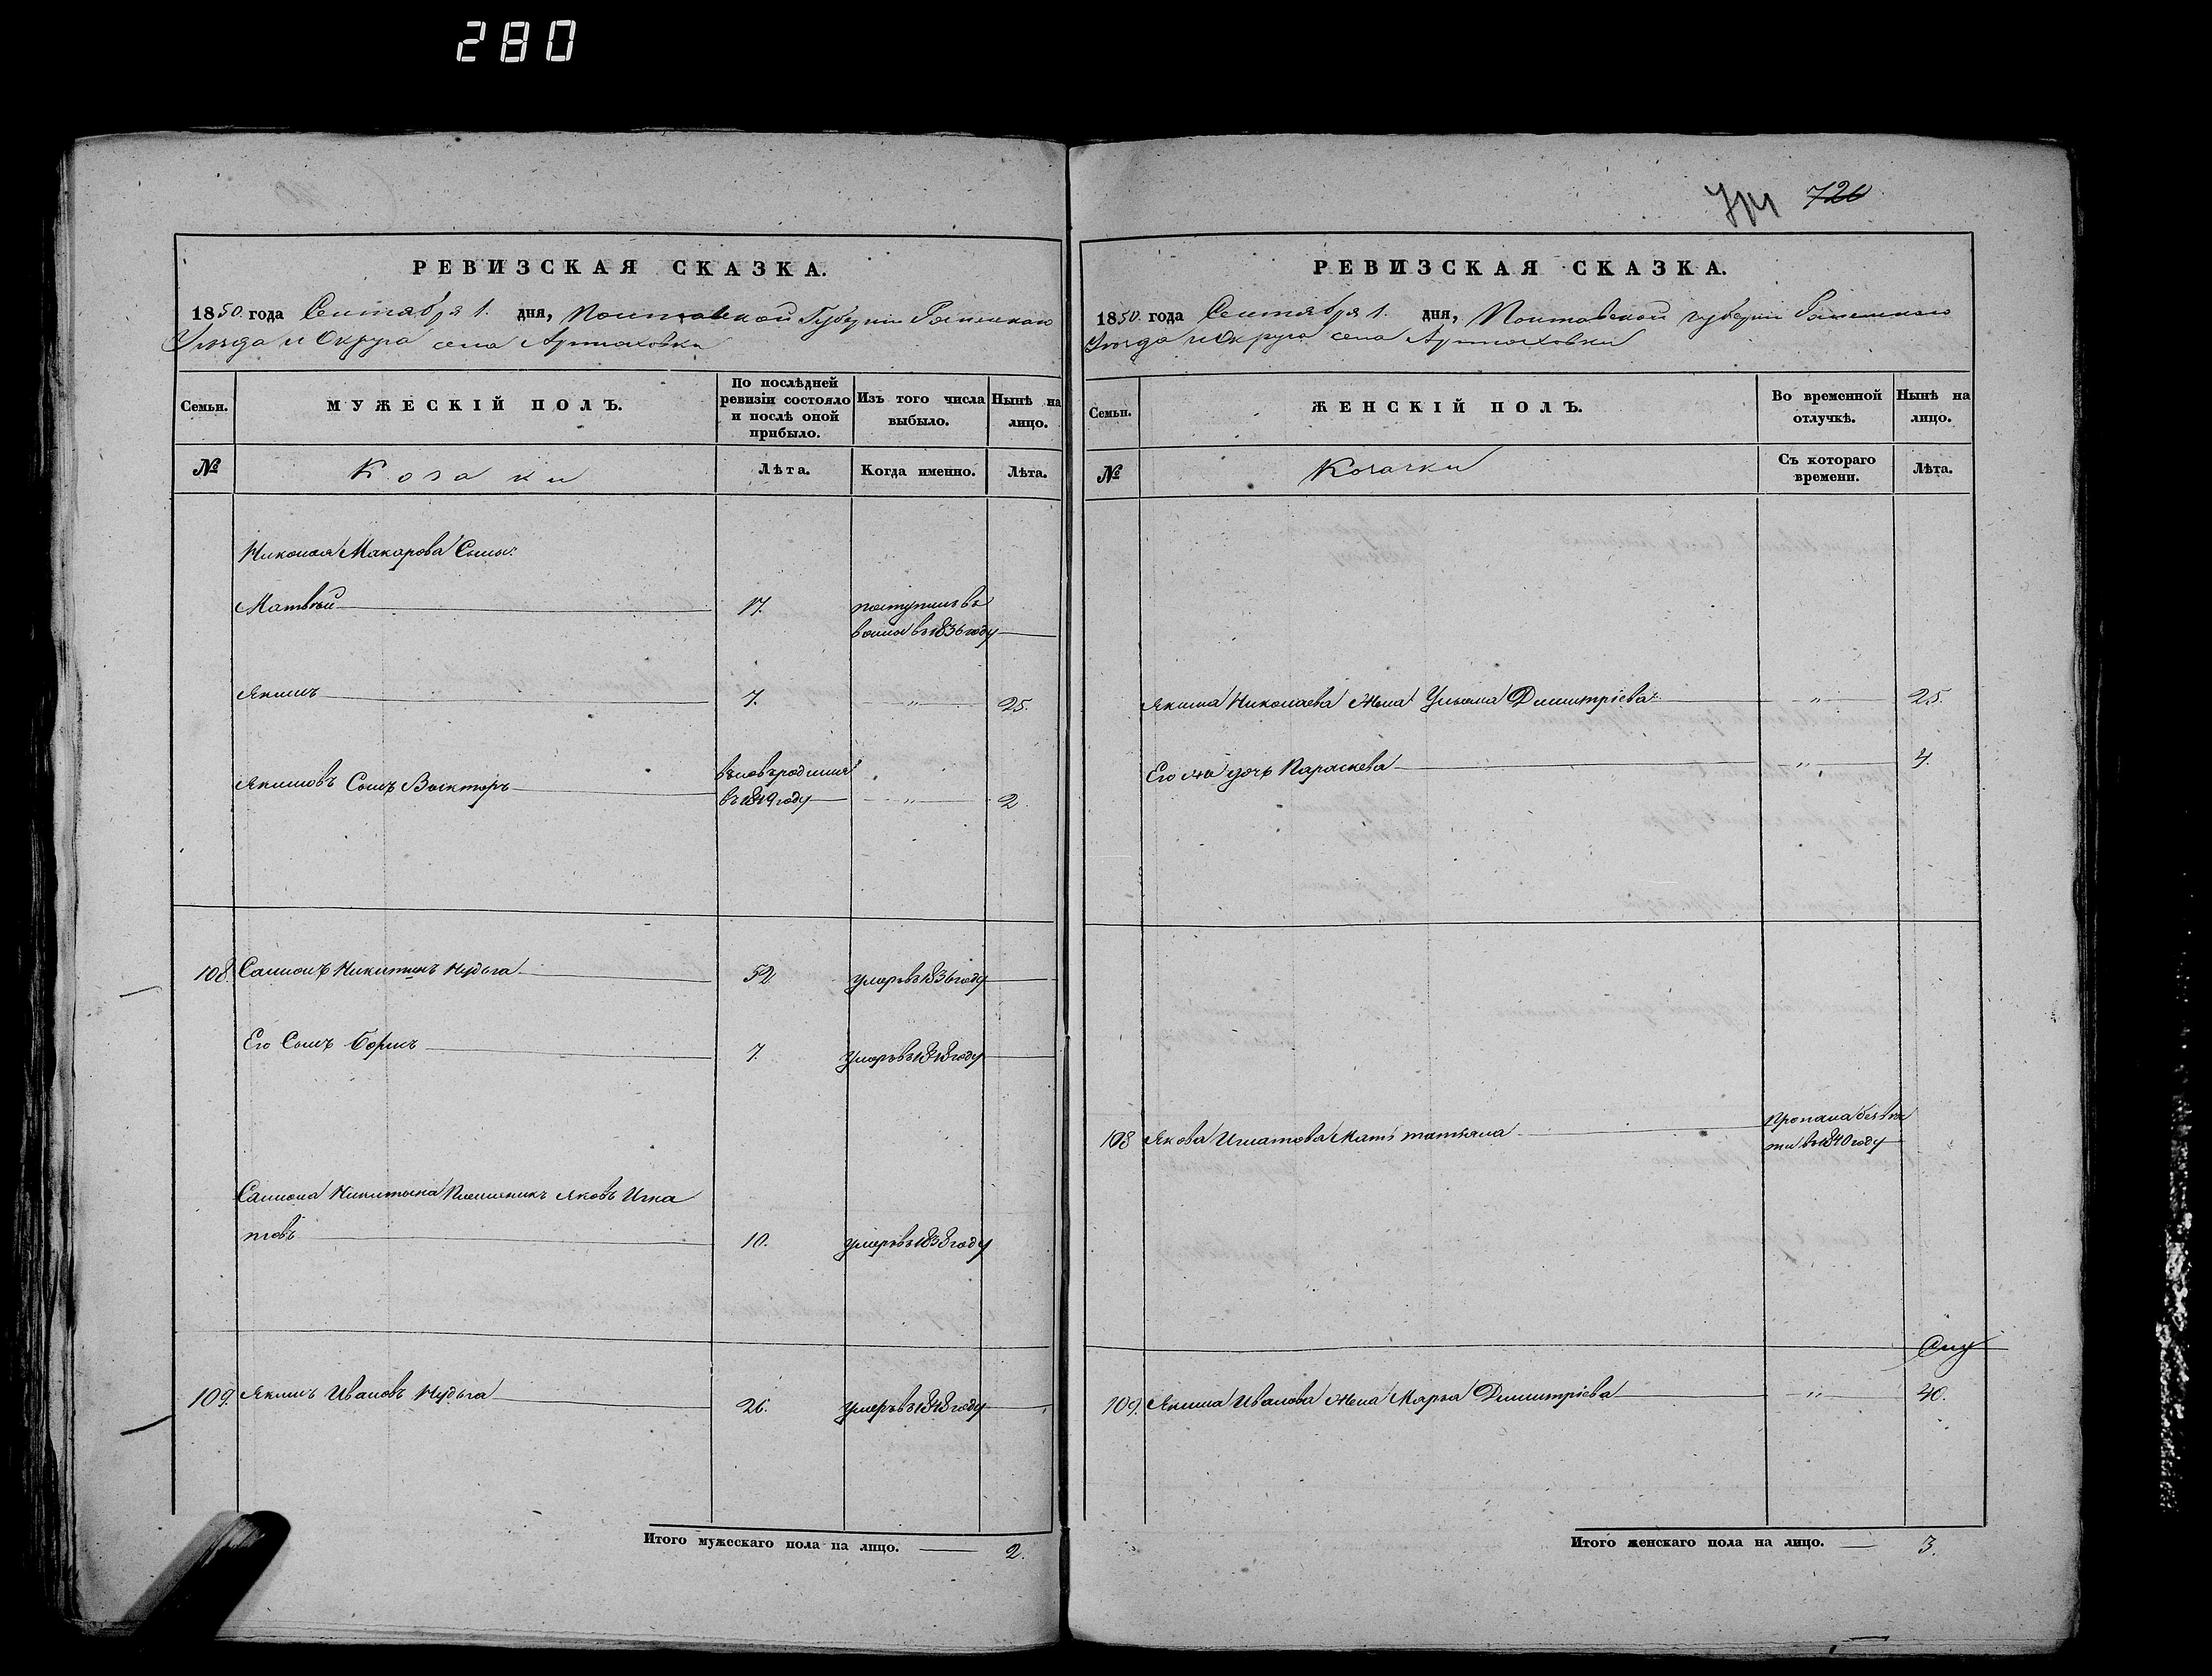 280
720
РЕВИЗСКАЯ СКАЗКА.
1850. года Сентября 1. дня, Полтавской Губерніи Роменскаго
Уѣзда и Округа села Артюховки
Семьи.
МУЖЕСКІЙ ПОЛЪ.
По послѣдней ревизіи состояло и послѣ оной прибыло.
Изъ того числа выбыло.
Нынѣ на лицо.
№
Козаки
Лѣта.
Когда именно.
Лѣта.
Николая Макарова Сыны:
Матвѣй 17. поступилъ въ
въ 1836 году
Якимъ 7. „ 25.
Якимовъ Сынъ Викторъ вновь родился
въ 1849 году „ 2.
108. Самсонъ Никитинъ Нудьга 52 умеръ въ 1836 году
Его Сынъ Борисъ 7. умеръ въ 1848 году
Самсона Никитина Племяникъ Яковъ Игна
товъ 10. умеръ въ 1838 году
109. Якимъ Ивановъ Нудьга 26. умеръ въ 1848 году
Итого мужескаго пола на лицо. 2.
РЕВИЗСКАЯ СКАЗКА.
1850. года Сентября 1. дня, Полтавской губерніи Роменскаго
Уѣзда и Округа села Артюховки
Семьи.
ЖЕНСКІЙ ПОЛЪ.
Во временной отлучкѣ.
Нынѣ на лицо.
№
Козачки
Съ котораго времени.
Лѣта.
Якима Николаева Жена Ульяна Димитріева „ 25.
Его же дочь Параскева „ 4.
108 Якова Игнатова Мать татьяна Пропала безъ вѣ
сти въ 1840 году
109. Якима Иванова Жена Марѳа Димитріева „ 40.
Итого женскаго пола на лицо. 3.